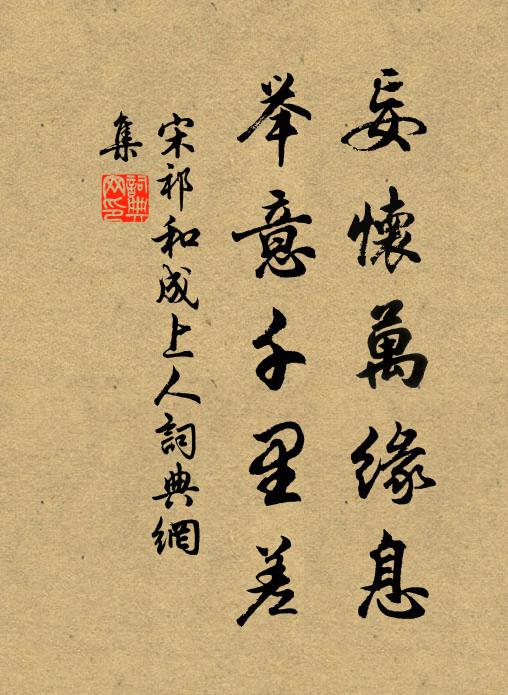 妄懷萬緣息
举意千里差
宋祁和成上人詞典網
集
詞典網印